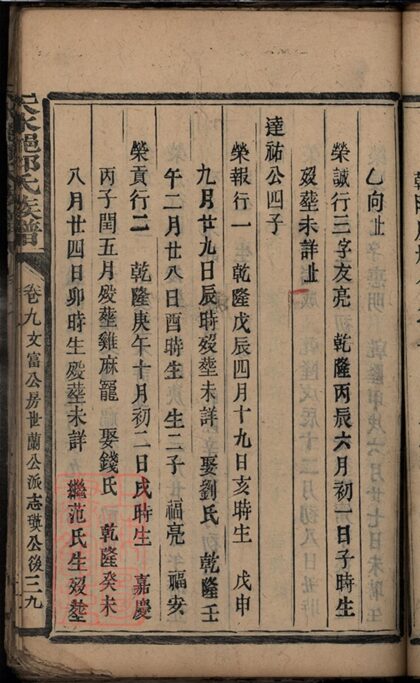 乙向址
榮誠行三字友亮 乾隆丙辰六月初一日子時生
歿塟未詳址
達祐公四子
榮報行一 乾隆戊辰四月十九日亥時生 戊申
九月廿九日辰時歿塟未詳 娶劉氏 乾隆壬
午二月廿八日酉時生 生二子 福亮 福安
榮貢行二 乾隆庚午十月初二日戌時生 嘉慶
丙子閏五月歿塟雞麻籠 娶錢氏 乾隆癸未
八月廿四日卯時生歿塟未詳 繼范氏生歿塟
氏族譜
卷九文富公房世蘭公派志瑛公後 三九